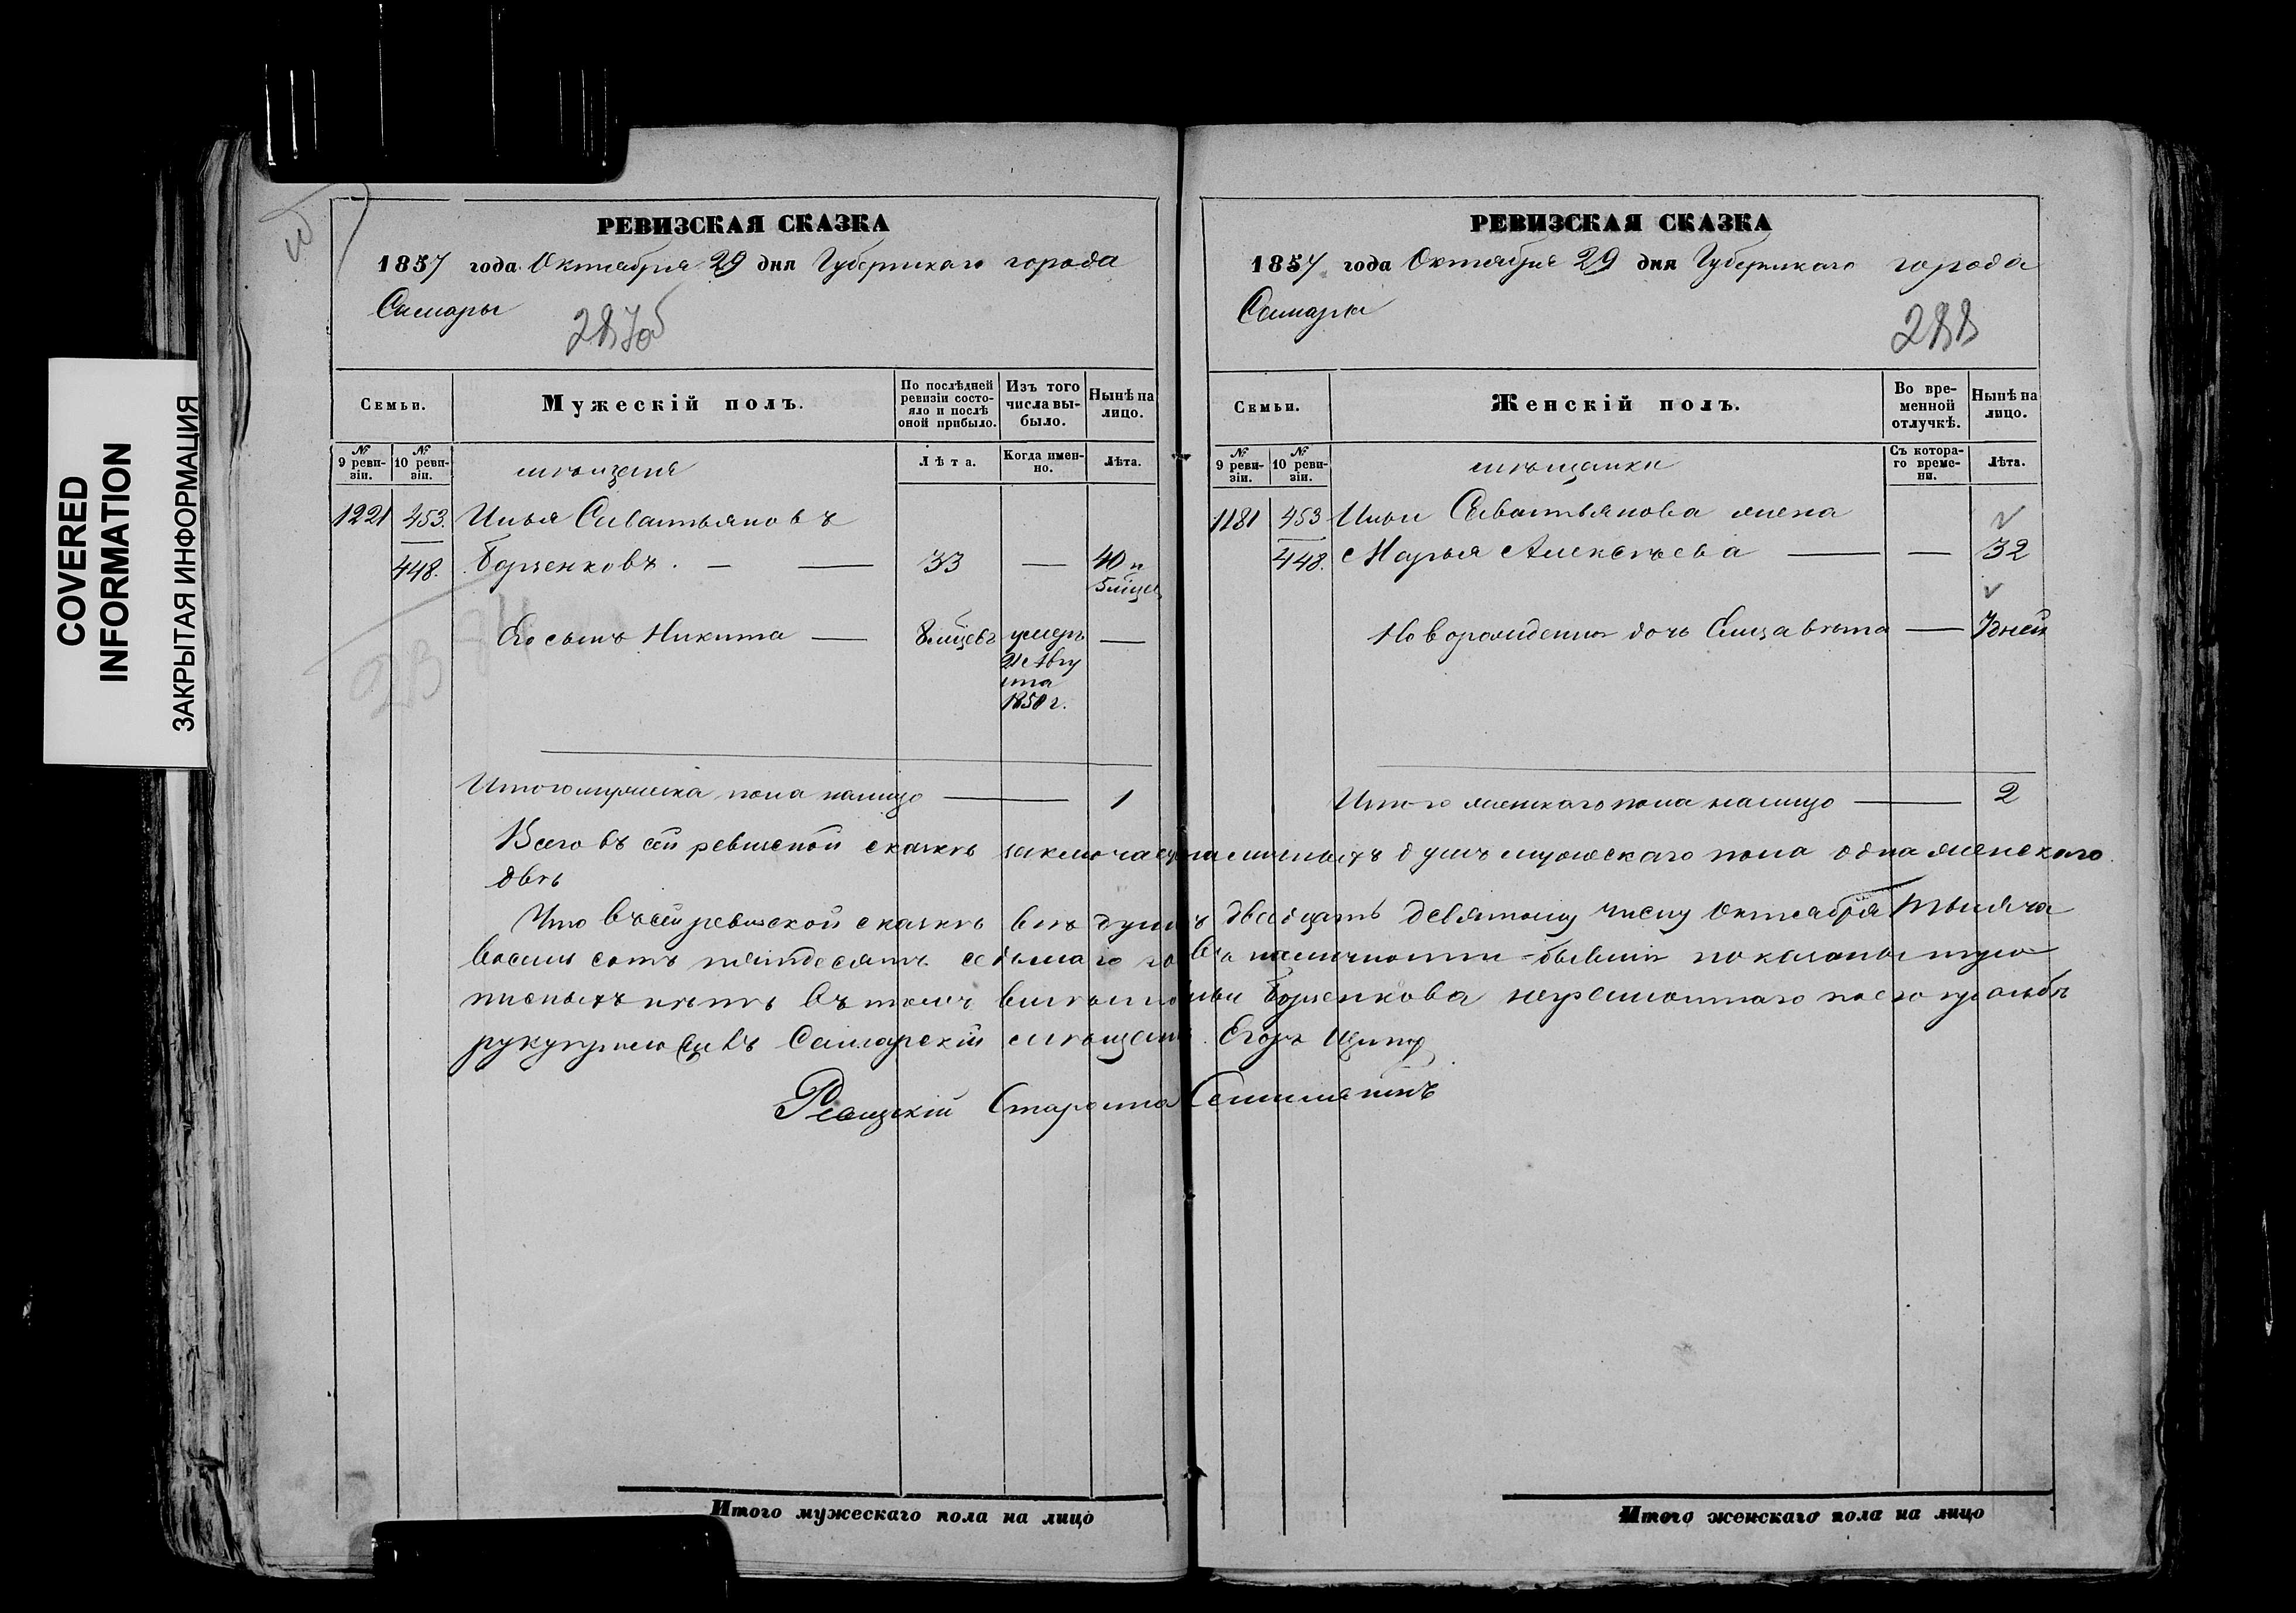 COVERED
INFORMATION
ЗАКРЫТАЯ ИНФОРМАЦИЯ
РЕВИЗСКАЯ СКАЗКА
1857 года Октября 29 дня Губернскаго города
Самары
287об
Семьи.
Мужескій полъ.
По послѣдней
ревизіи состо-
яло и послѣ
оной прибыло.
Изъ того
числа вы-
было.
Нынѣ на
лицо.
№
9 реви-
зіи.
№
10 реви-
зіи.
мѣщане
Лѣта.
Когда имен-
но.
Лѣта.
1221 453. Илья Савастьяновъ
448. Борзенковъ. — — 33 — 40 и
5 мцев
Его сынъ Никита — 8 мцевъ умеръ —
21 Авгу
ста
1850 г.
Итого мужска пола налицо — 1
РЕВИЗСКАЯ СКАЗКА
1857 года Октября 29 дня Губернскаго города
Самары
288
Семьи.
Женскій полъ.
Во вре-
менной
отлучкѣ.
Нынѣ на
лицо.
№
9 реви-
зіи.
№
10 реви-
зіи.
мѣщанки
Съ котора-
го време-
ни.
Лѣта.
1181 453 Ильи Савастьянова жена
448. Марья Алексѣева — — 32
Новорожденная дочь Елизавѣта — 7 дней
Итого женскаго пола налицо — 2
Всего въ сей ревизской сказкѣ заключается наличныхъ душъ мужескаго пола одна женскаго
двѣ
Что въ сей ревизской сказкѣ всѣ души къ двадцать девятому числу Октября тысяча
восемь сотъ пятдесятъ седьмаго года въ наличности бывшія показаны и про
писныхъ нѣтъ въ томъ вмѣсто Ильи Борзенкова неграмотнаго по его прозьбѣ
руку приложилъ Самарскій мѣщанинъ Егоръ
Староста
Итого мужескаго пола на лицо
Итого женскаго пола на лицо